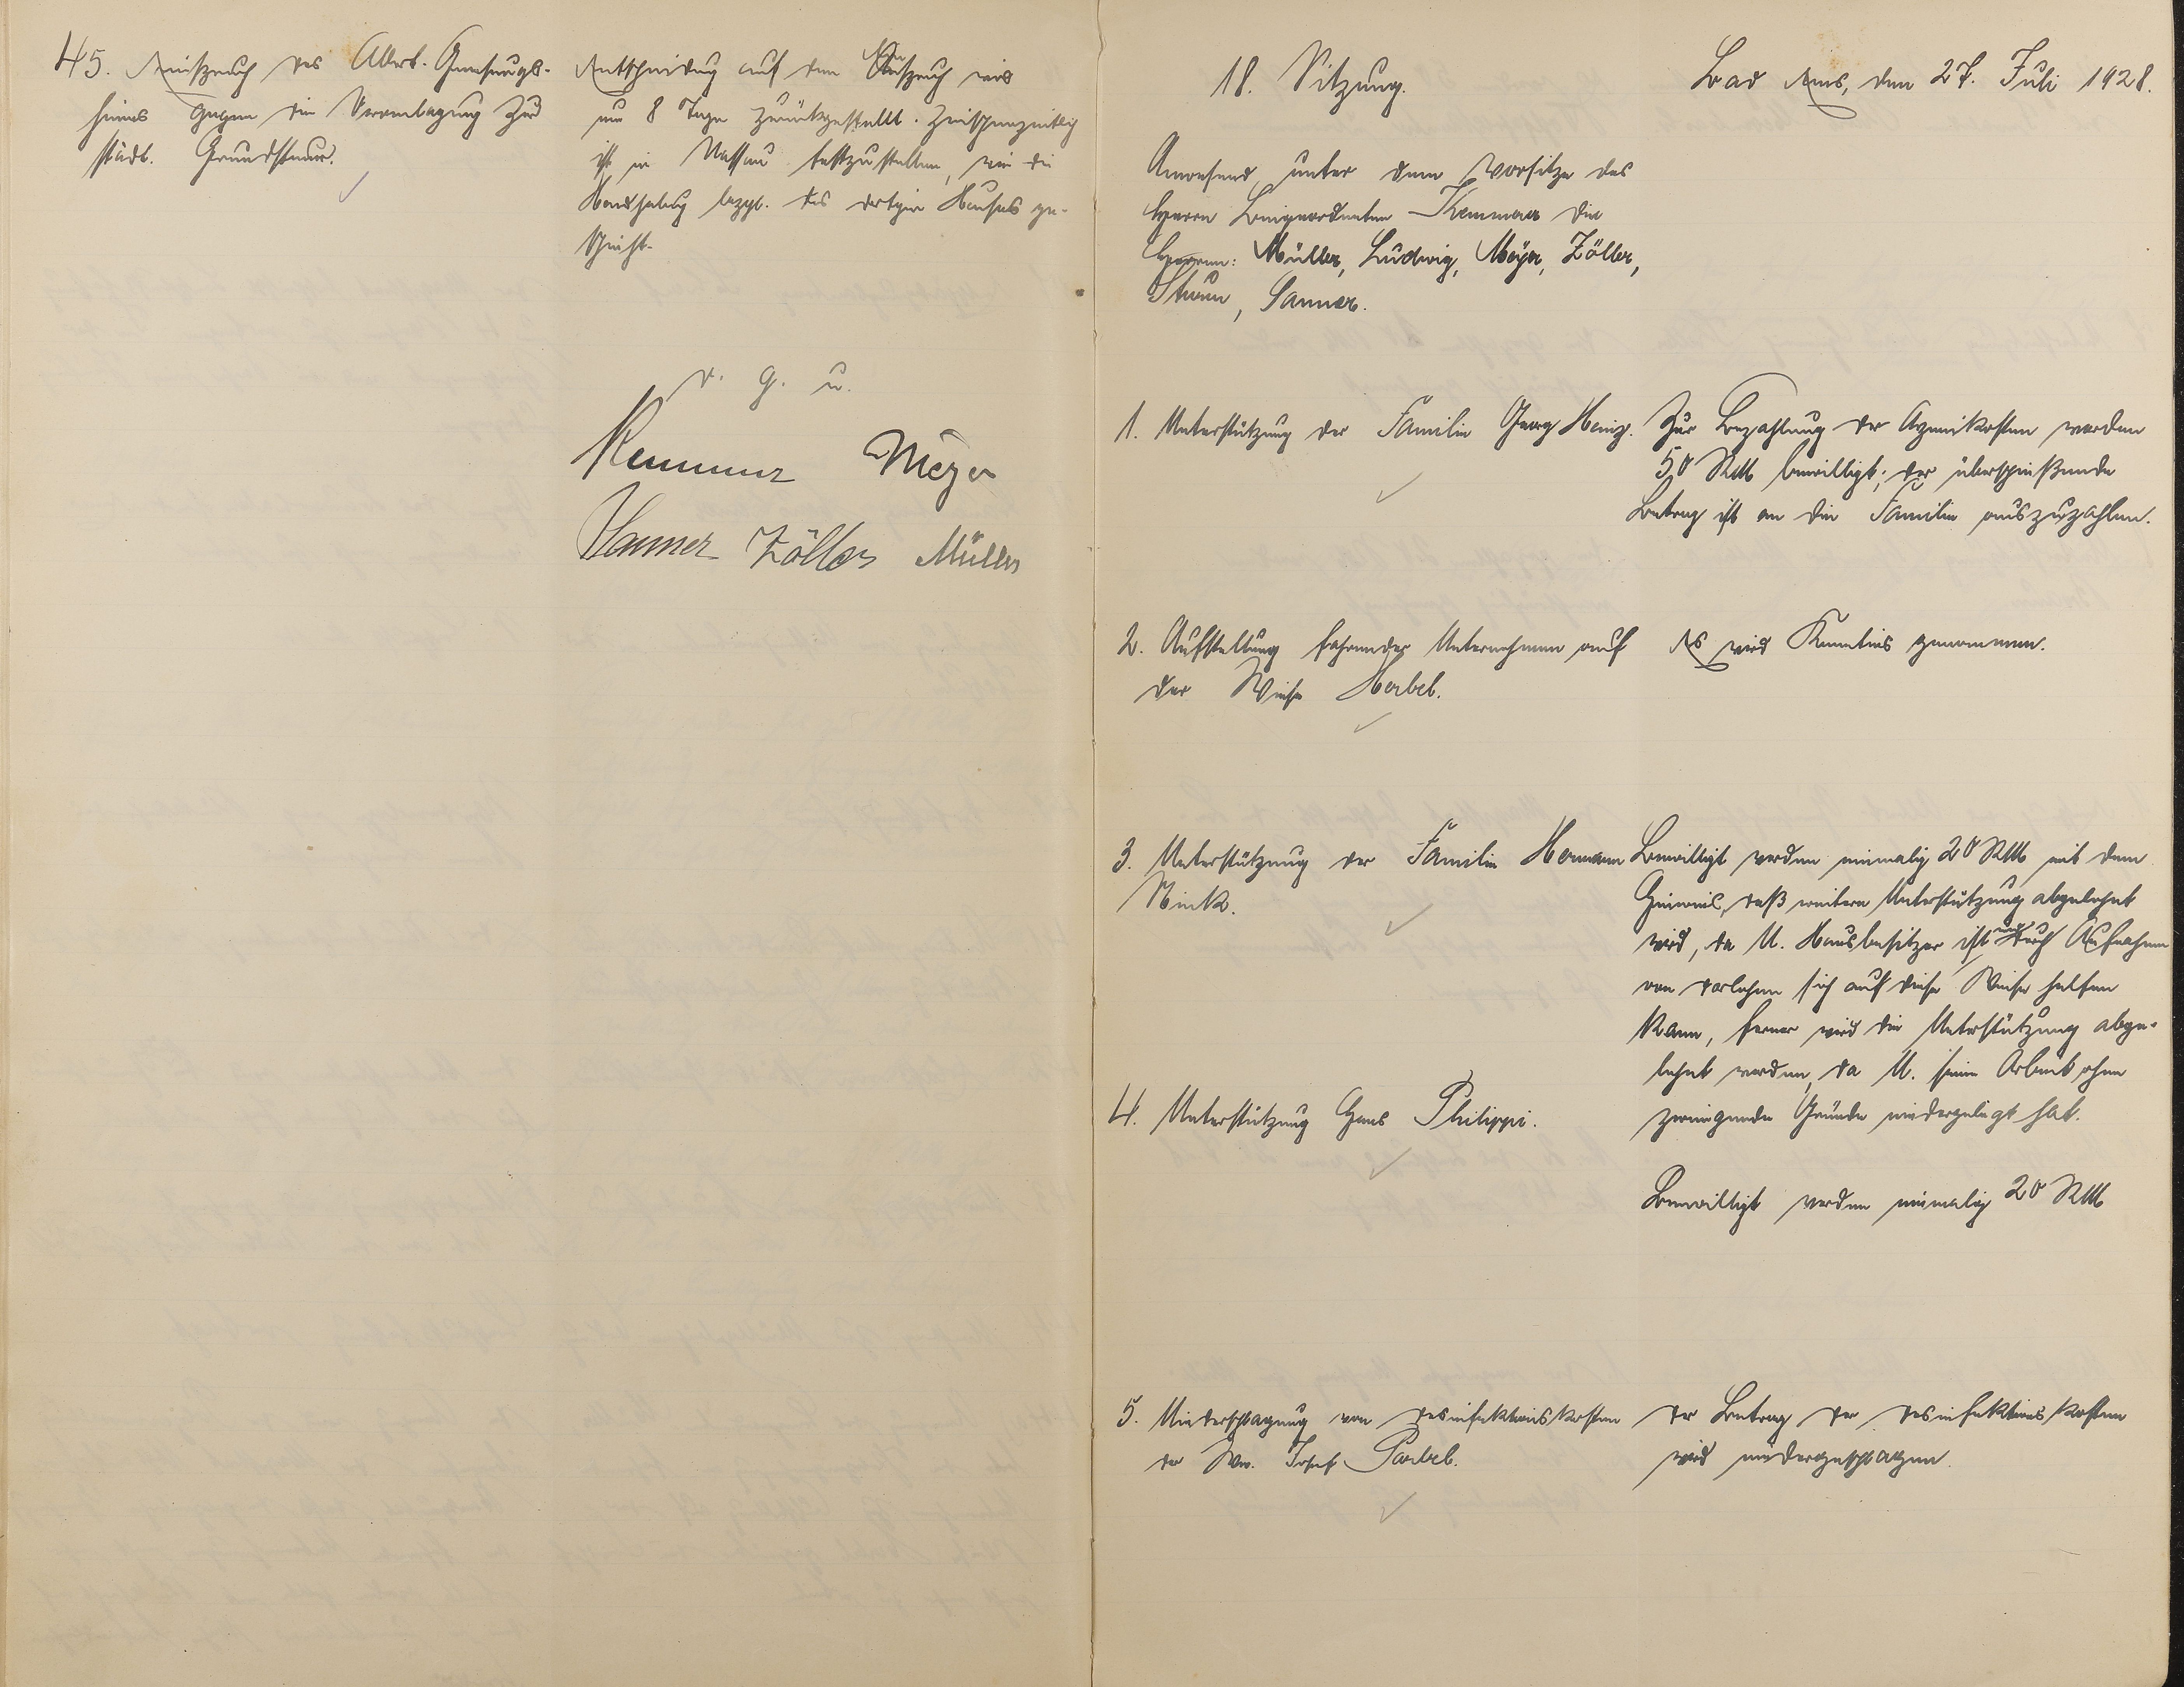 45. Einspruch des Allert. Genesungs-
heimes gegen die Veranlagung zur
städt. Grundsteuer.
Entscheidung auf den Einspruch wird
um 8 Tage zurückgestellt. Zwischenzeitlich
ist in Nassau festzustellen, wie die
Handhabung bezgl. des dortigen Hauses ge-
schieht.
v. g. u.
Kemmer Meyer
Sanner Zöller Müller
18. Sitzung.
Bad Ems, den 27. Juli 1928.
Anwesend unter dem Vorsitze des
Herrn Beigeordneten Kemmer die
Herren: Müller, Ludwig, Meyer, Zöller,
Sturm, Sanner.
1. Unterstützung der Familie Georg Heinz.
Zur Bezahlung der Arzneikosten werden
50 RM bewilligt; der überschießende
Betrag ist an die Familie auszuzahlen.
2. Aufstellung fahrender Unternehmen auf
der Wiese Herbel.
Es wird Kenntnis genommen.
3. Unterstützung der Familie Hermann
Nink.
Bewilligt werden einmalig 20 RM mit dem
Hinweis, daß weitere Unterstützung abgelehnt
wird, da N. Hausbesitzer ist und durch Aufnahme
von Darlehen sich auf diese Weise helfen
kann, ferner wird die Unterstützung abge-
lehnt werden, da N. seine Arbeit ohne
zwingende Gründe niedergelegt hat.
4. Unterstützung Hans Philippi.
Bewilligt werden einmalig 20 RM
5. Niederschlagung von Desinfektionskosten
der Ww. Josef Paebel.
Der Betrag der Desinfektionskosten
wird niedergeschlagen.